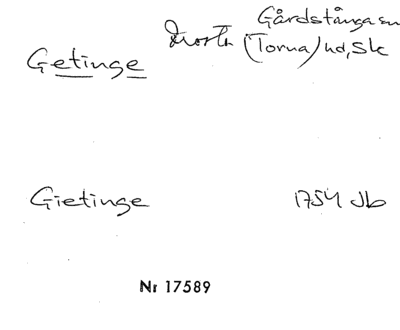 Gårdstånga sn
Getinge Frosta (Torna) hd, Sk
Gietinge 1754 Jb
Nr 17589